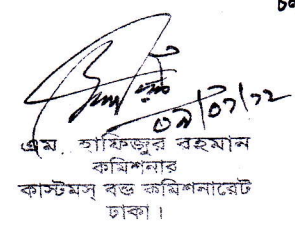 ০৯/০১/১২
এম. হাফিজুর রহমান
কমিশনার
কাস্টমস্ বন্ড কমিশনারেট
ঢাকা।